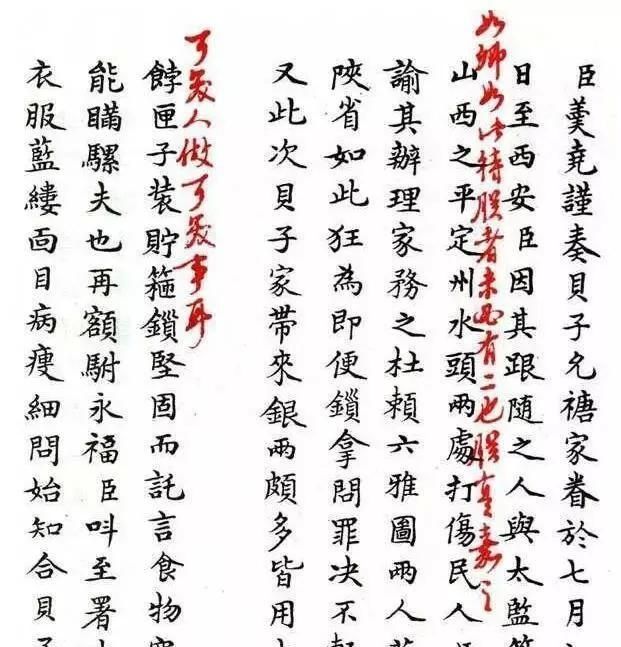 臣羹尭謹奏貝子允禟家眷於七月
日至西安臣因其跟隨之人與太監
如卿如此待朕者未必有二也朕真嘉之
山西之平定州水頭兩處打傷民人
諭其辦理家務之杜賴六雅圖兩人
陝省如此狂為即便鎖拿問罪决不
又此次貝子家帶來銀兩頗多皆用
可笑人做可笑事耳
餑匣子裝貯箍鎖堅固而託言食物
能瞞騾夫也再額駙永福臣呌至署
衣服藍縷面目病瘦細問始知合貝